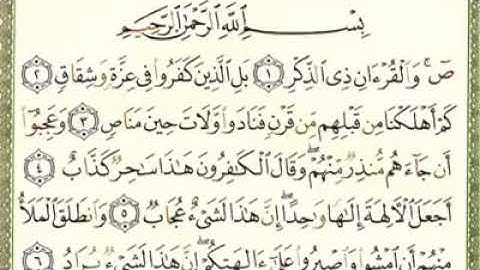 بِسْمِ اللَّهِ الرَّحْمَٰنِ الرَّحِيمِ
صٓ ۚ وَالْقُرْءَانِ ذِي الذِّكْرِ ١ بَلِ الَّذِينَ كَفَرُوا فِي عِزَّةٍ وَشِقَاقٍ ٢
كَمْ أَهْلَكْنَا مِن قَبْلِهِم مِّن قَرْنٍ فَنَادَوا وَّلَاتَ حِينَ مَنَاصٍ ٣ وَعَجِبُوٓا
أَن جَآءَهُم مُّنذِرٌ مِّنْهُمْ ۖ وَقَالَ الْكَٰفِرُونَ هَٰذَا سَٰحِرٌ كَذَّابٌ ٤
أَجَعَلَ الْءَالِهَةَ إِلَٰهًا وَٰحِدًا ۖ إِنَّ هَٰذَا لَشَيْءٌ عُجَابٌ ٥ وَانطَلَقَ الْمَلَأُ
مِنْهُمْ أَنِ امْشُوا وَاصْبِرُوا عَلَىٰٓ ءَالِهَتِكُمْ ۖ إِنَّ هَٰذَا لَشَيْءٌ يُرَادُ ٦